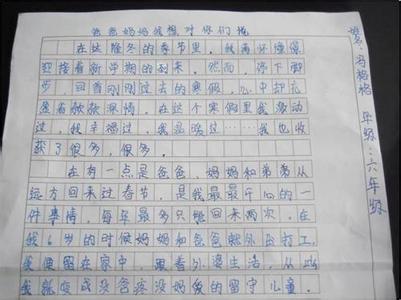 爸爸妈妈我想对你们说
在这隆冬的季节里，我满怀憧憬
迎接着新学期的到来，然而，停下脚
步，回首刚刚过去的寒假，心中却充
是着依依深情。在这个寒假里我激动
过，我幸福过，我悲痛过……我也收
获了很多，很多。
在有一点是爸爸，妈妈和弟弟从
远方回来过春节，是我最最开心的一
件事情，每年最多只能回来两次。在
我6岁的时候妈妈和爸爸都外出打工，
我便留在家中，跟着外婆生活，从此
我就变成没爸疼没妈爱的留守儿童。
姓名：马格格 年级：六年级